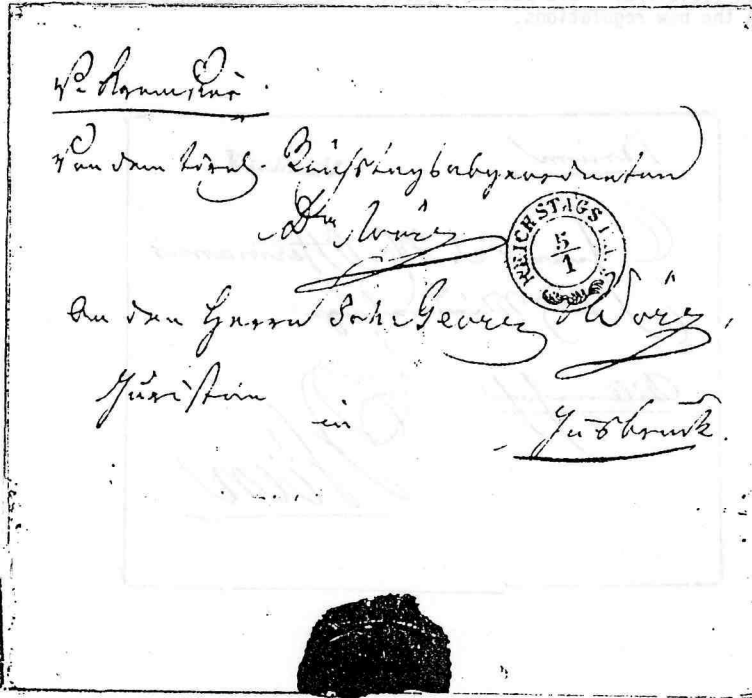 the new regulations.
v. Kremsier
Von dem tirol. Reichstagsabgeordneten
Dr Wörz
REICHSTAGS
5/1
An den Herrn Joh: Georg Wörz,
Juristen
in
Insbruck.